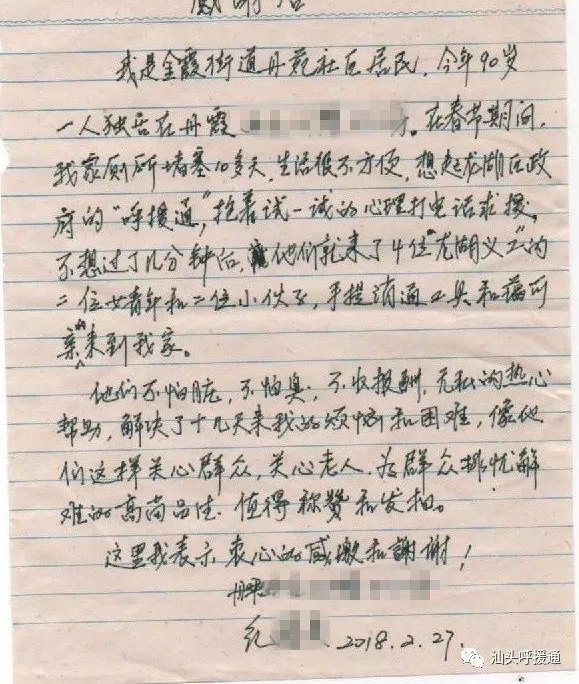 感谢信
我是金霞街道丹苑社区居民，今年90岁
一人独居在丹霞 。在春节期间，
我家厕所堵塞10多天，生活很不方便，想起龙湖区政
府的“呼援通”，抱着试一试的心理打电话求援。
不想过了几分钟后，他们就来了4位“龙湖义工”的
二位女青年和二位小伙子，手提消通工具和药
来到我家。
他们不怕脏，不怕臭；不收报酬，无私的热心
帮助，解决了十几天来我的烦恼和困难，像他
们这样关心群众，关心老人，为群众排忧解
难的高尚品性，值得称赞和发扬。
这里我表示衷心的感激和謝谢！
纪 2018.2.27.
汕头呼援通